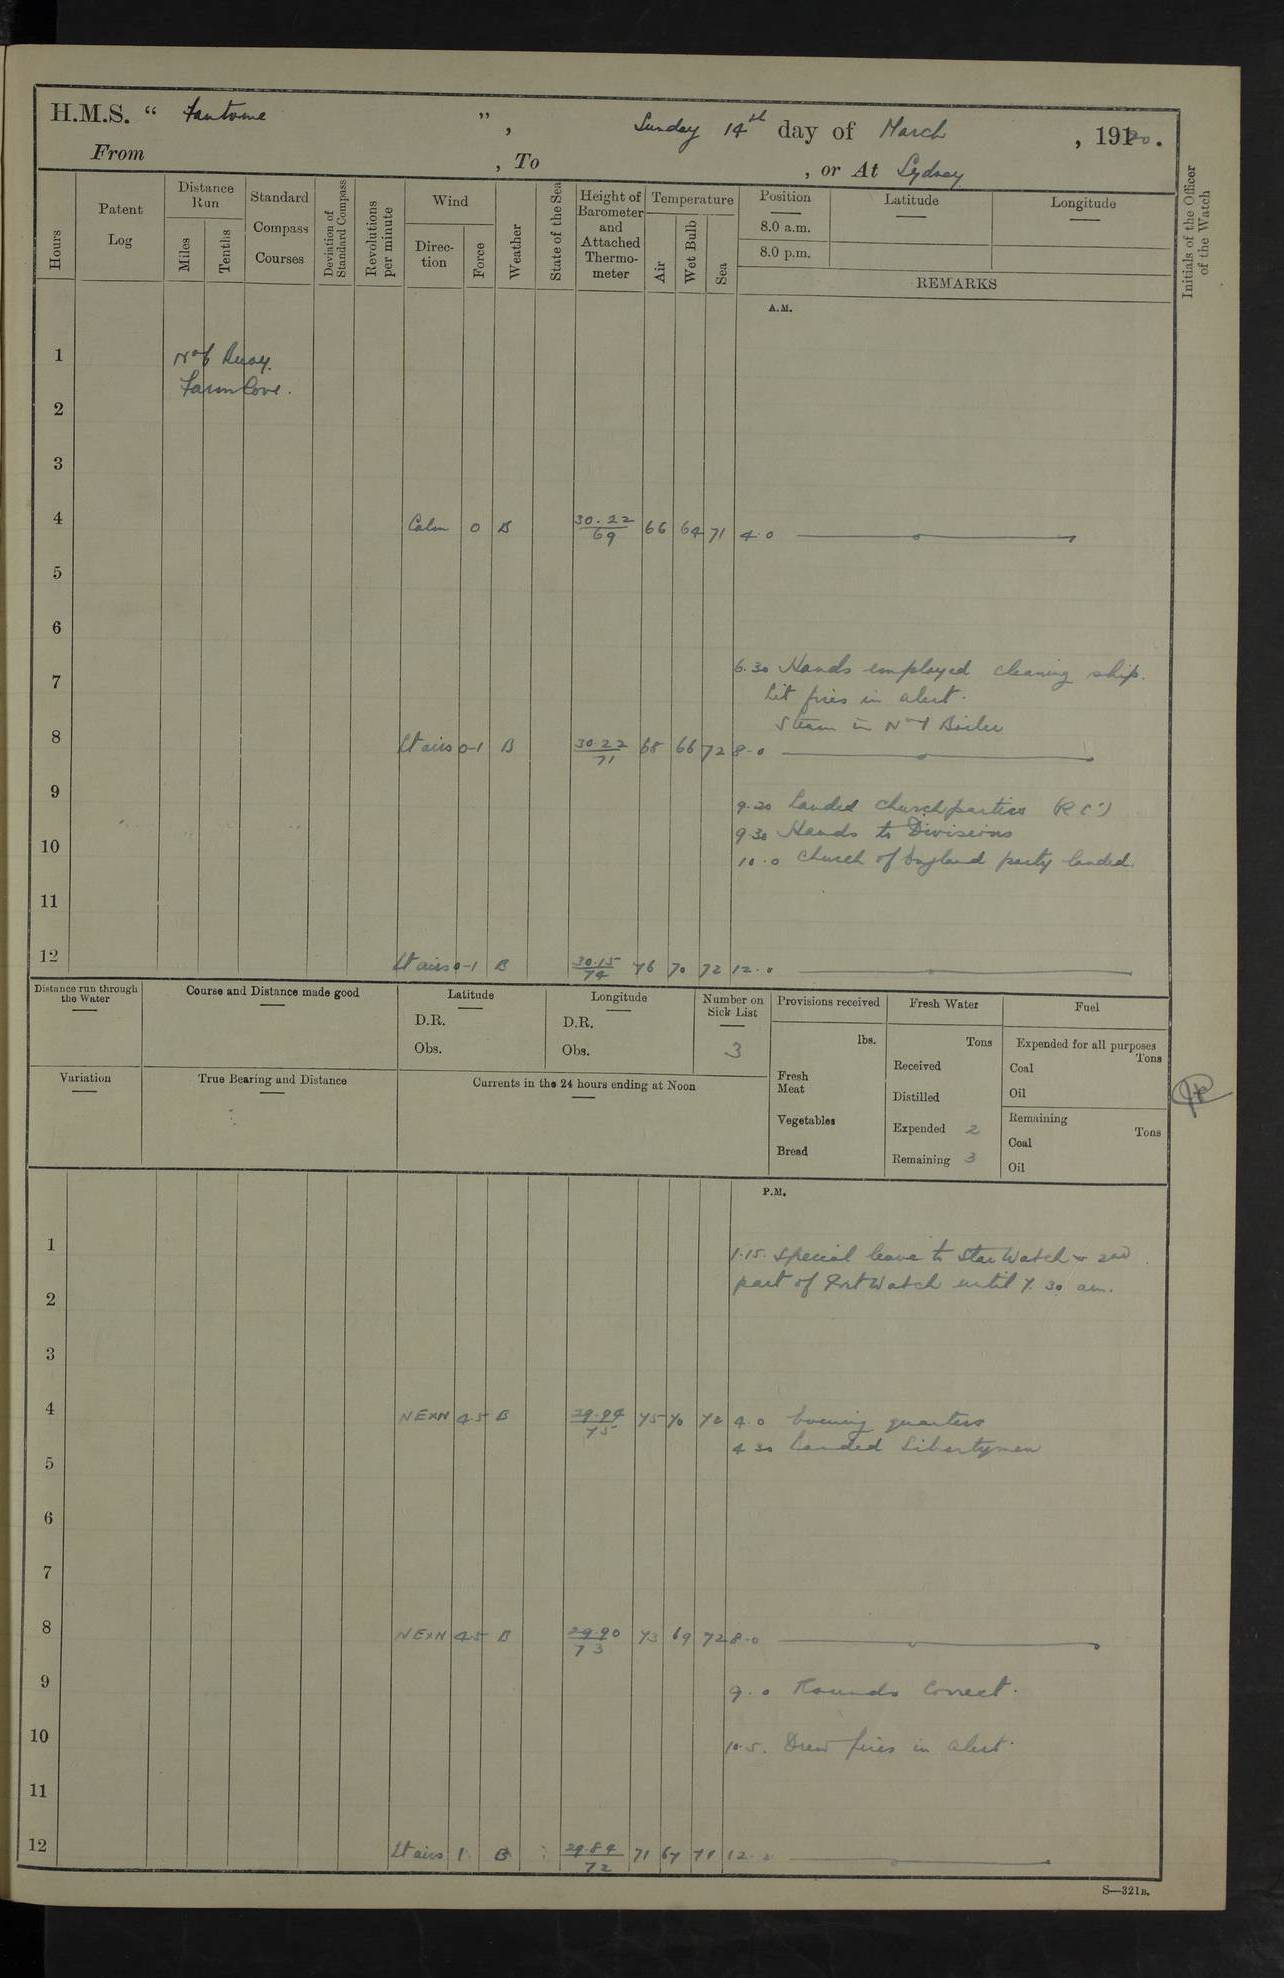 H.M.S. “ Fantome ”, Sunday 14th day of March, 1920.
From , To , or At Sydney
Hours
Patent Log
Distance Run
Miles
Tenths
Standard Compass Courses
Deviation of Standard Compass
Revolutions per minute
Wind
Direction
Force
Weather
State of the Sea
Height of Barometer and Attached Thermometer
Temperature
Air
Wet Bulb
Sea
Position
8.0 a.m.
8.0 p.m.
Latitude
Longitude
REMARKS
Initials of the Officer of the Watch
A.M.
1 No 6 Buoy.
Farm Cove.
2
3
4 Calm 0 B 30.22/69 66 64 71 4.0
5
6
6.30 Hands employed cleaning ship.
7
Lit fires in alert.
Steam in No 1 Boiler
8 Lt airs 0-1 B 30.22/71 68 66 72 8.0
9
9.20 Landed church parties (R.C.)
9.30 Hands to Divisions
10
10.0 Church of England party landed.
11
12 Lt airs 0-1 B 30.15/74 76 70 72 12.0
Distance run through the Water
Course and Distance made good
Latitude
D.R.
Obs.
Longitude
D.R.
Obs.
Number on Sick List
3
Provisions received
lbs.
Fresh Meat
Vegetables
Bread
Fresh Water
Tons
Received
Distilled
Expended 2
Remaining 3
Fuel
Expended for all purposes
Tons
Coal
Oil
Remaining
Tons
Coal
Oil
Variation
True Bearing and Distance
Currents in the 24 hours ending at Noon
P.M.
1
1.15. Special leave to Star Watch & 2nd
part of Port Watch until 7.30 am.
2
3
4 NExN 4.5 B 29.94/75 75 70 72 4.0 Evening quarters
4.30 Landed Libertymen
5
6
7
8 NExN 4.5 B 29.90/73 73 69 72 8.0
9
9.0 Rounds Correct.
10
10.5. Drew fires in alert.
11
12 Lt airs 1 B 29.84/72 71 67 71 12.0
S—321B.